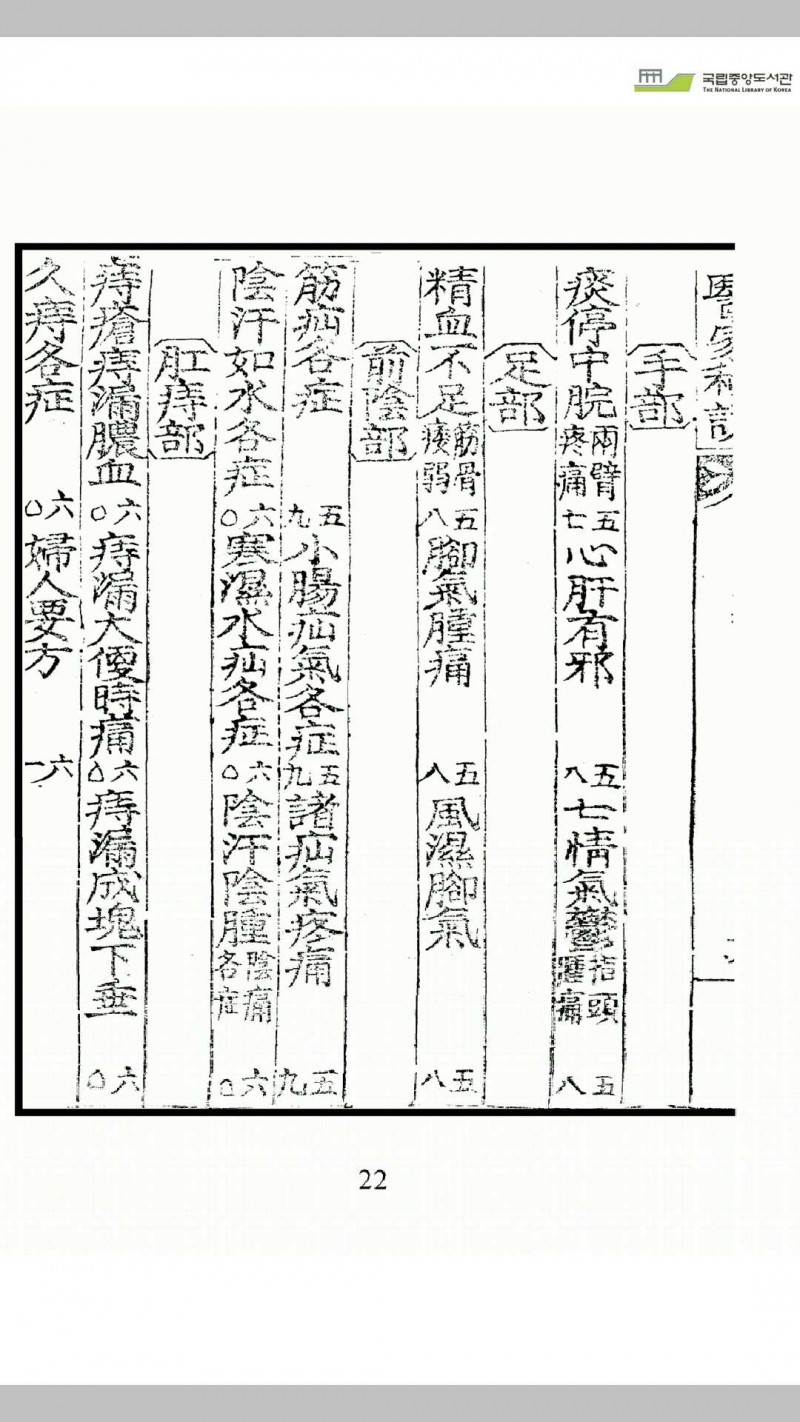 국립중앙도서관
THE NATIONAL LIBRARY OF KOREA
醫家秘訣
手部
痰停中脘兩臂疼痛五七心肝有邪五八七情氣鬱指頭腫痛五八
足部
精血不足筋骨痿弱五八腳氣腫痛五八風濕腳氣五八
前陰部
筋疝各症五九小腸疝氣各症五九諸疝氣疼痛五九
陰汗如水各症六〇寒濕水疝各症六〇陰汗陰腫陰痛各症六〇
肛痔部
痔瘡痔漏膿血六〇痔漏大便時痛六〇痔漏成塊下垂六〇
久痔各症六〇婦人要方六一
22